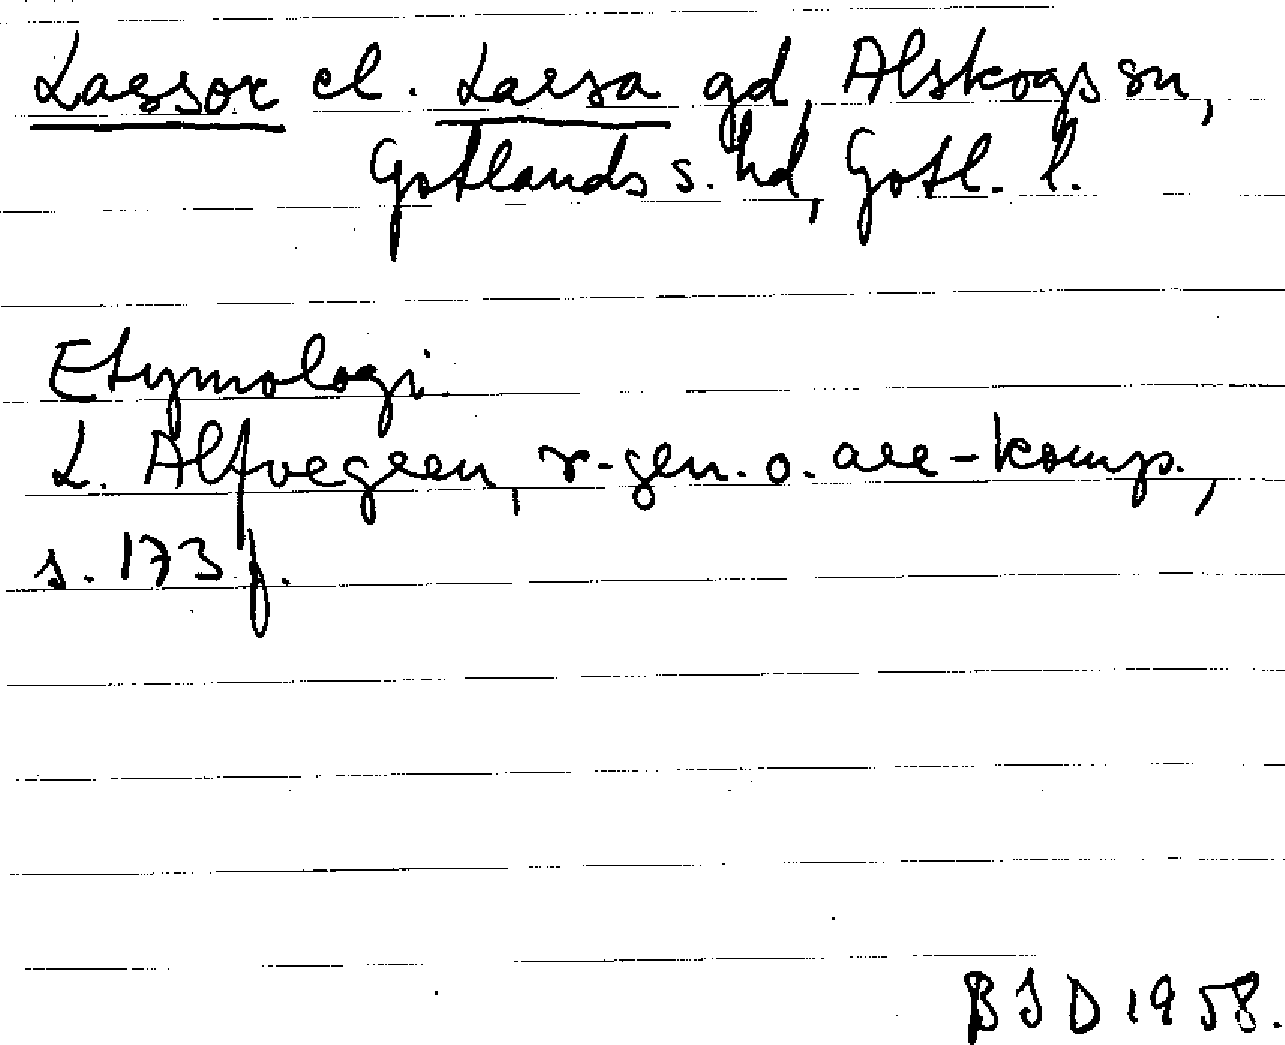 Larsor el. Larsa gd, Alskogs sn,
Gotlands s. hd, Gotl. l.
Etymologi
L. Alfvegren, r-gen. o. are-komp.,
s. 173 f.
BJD 1958.